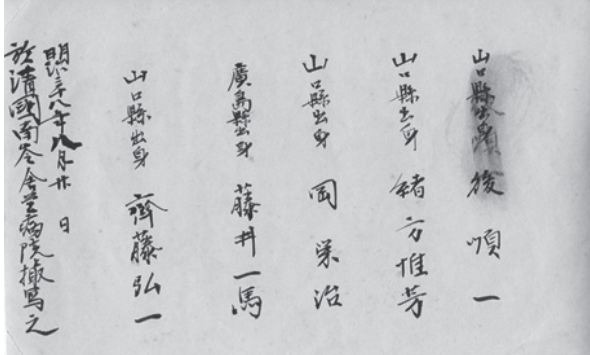 山口縣出身 後 順一
山口縣出身 緒方惟芳
山口縣出身 岡 栄治
廣島縣出身 藤井一馬
山口縣出身 齊藤弘一
明治三十八年八月廿 日
於清國南 舎営病院撮寫之